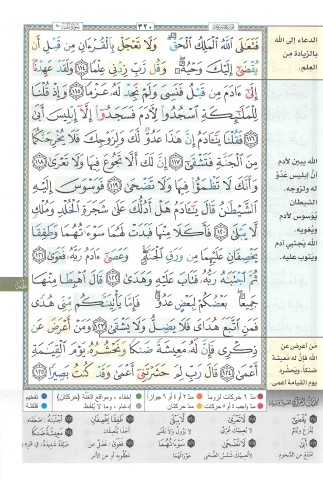 ٣٢٠
فَتَعَٰلَى ٱللَّهُ ٱلْمَلِكُ ٱلْحَقُّ ۗ وَلَا تَعْجَلْ بِٱلْقُرْءَانِ مِن قَبْلِ أَن
يُقْضَىٰٓ إِلَيْكَ وَحْيُهُۥ ۖ وَقُل رَّبِّ زِدْنِى عِلْمًا ١١٤ وَلَقَدْ عَهِدْنَآ
إِلَىٰٓ ءَادَمَ مِن قَبْلُ فَنَسِىَ وَلَمْ نَجِدْ لَهُۥ عَزْمًا ١١٥ وَإِذْ قُلْنَا
لِلْمَلَٰٓئِكَةِ ٱسْجُدُوا۟ لِـَٔادَمَ فَسَجَدُوٓا۟ إِلَّآ إِبْلِيسَ أَبَىٰ
١١٦ فَقُلْنَا يَٰٓـَٔادَمُ إِنَّ هَٰذَا عَدُوٌّ لَّكَ وَلِزَوْجِكَ فَلَا يُخْرِجَنَّكُمَا
مِنَ ٱلْجَنَّةِ فَتَشْقَىٰٓ ١١٧ إِنَّ لَكَ أَلَّا تَجُوعَ فِيهَا وَلَا تَعْرَىٰ ١١٨
وَأَنَّكَ لَا تَظْمَؤُا۟ فِيهَا وَلَا تَضْحَىٰ ١١٩ فَوَسْوَسَ إِلَيْهِ
ٱلشَّيْطَٰنُ قَالَ يَٰٓـَٔادَمُ هَلْ أَدُلُّكَ عَلَىٰ شَجَرَةِ ٱلْخُلْدِ وَمُلْكٍ
لَّا يَبْلَىٰ ١٢٠ فَأَكَلَا مِنْهَا فَبَدَتْ لَهُمَا سَوْءَٰتُهُمَا وَطَفِقَا
يَخْصِفَانِ عَلَيْهِمَا مِن وَرَقِ ٱلْجَنَّةِ ۚ وَعَصَىٰٓ ءَادَمُ رَبَّهُۥ فَغَوَىٰ ١٢١
ثُمَّ ٱجْتَبَٰهُ رَبُّهُۥ فَتَابَ عَلَيْهِ وَهَدَىٰ ١٢٢ قَالَ ٱهْبِطَا مِنْهَا
جَمِيعًۢا ۖ بَعْضُكُمْ لِبَعْضٍ عَدُوٌّ ۖ فَإِمَّا يَأْتِيَنَّكُم مِّنِّى هُدًى
فَمَنِ ٱتَّبَعَ هُدَاىَ فَلَا يَضِلُّ وَلَا يَشْقَىٰ ١٢٣ وَمَنْ أَعْرَضَ عَن
ذِكْرِى فَإِنَّ لَهُۥ مَعِيشَةً ضَنكًا وَنَحْشُرُهُۥ يَوْمَ ٱلْقِيَٰمَةِ
أَعْمَىٰ ١٢٤ قَالَ رَبِّ لِمَ حَشَرْتَنِىٓ أَعْمَىٰ وَقَدْ كُنتُ بَصِيرًا ١٢٥
الدعاء إلى الله
بالزيادة من
العلم.
الله يبين لآدم
أن إبليس عدوّ
له ولزوجه.
الشيطان
يُوسوس لآدم
ويُغويه.
الله يَجتبي آدم
ويَتوب عليه.
مَن أعرض عن
ذكر الله فإنّ له معيشة
ضنكاً، ويحشره
يوم القيامة أعمى.